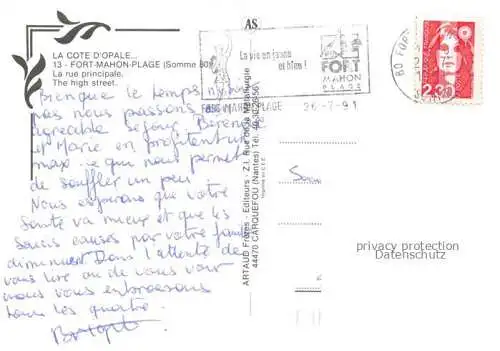 AS
LA COTE D'OPALE...
13 - FORT-MAHON-PLAGE (Somme 80)
La rue principale.
The high street.
Bien que le temps
pas nous passons
agréable séjour Bérénice
et Marie en profitent un
max. ce qui nous permet
de souffler un peu.
Nous espérons que votre
santé va mieux et que les
soucis causés par votre
diminuent Dans l'attente de
vous lire ou de vous voir
nous vous embrassons
tous les quatre.
ARTAUD Frères - Editeurs - Z.I. Rue de la Métallurgie
44470 CARQUEFOU (Nantes) Tél. 40.30
La vie en jaune
et bleu !
FORT
MAHON
PLAGE
MAHON PLAGE 26-7-91
80 FORT
2,30
privacy protection
Datenschutz